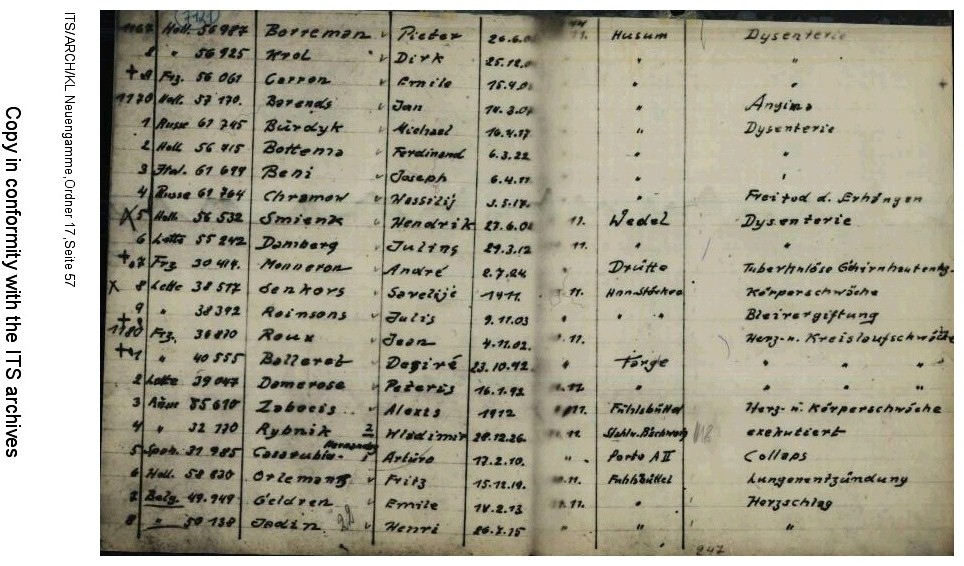 Copy in conformity with the ITS archives
ITS/ARCH/KL Neuengamme, Ordner 17, Seite 57
1167 Holl. 56987 Borreman Pieter 26.6. 11. Husum Dysenterie
8 " 56925 Krol Dirk 25.12. " "
+ Frz. 56061 Carron Emile 15.4. " "
1170 Holl. 57170. Barends Jan 14.3. " Angina
1 Russe 61745 Bürdyk Michael 16.4.17 " Dysenterie
2 Holl. 56415 Bottema Ferdinand 6.3.22 " "
3 Ital. 61699 Beni Joseph 6.4.11 "
4 Russe 61764 Chramow Wassilij 3.5.17. " Freitod d. Erhängen
X 5 Holl. 56532 Smienk Hendrik 27.6. 11. Wedel Dysenterie
6 Lette 55242 Damberg Julius 29.3.12 11. " "
+ 7 Frz. 30414. Monneron André 2.7.24 " Drütte
X 8 Lette 38517 Senkors Savelijs 1911. 11. Körperschwäche
9 " 38392 Reinsons Julis 9.11.03 " " " Bleivergiftung
+ 1180 Frz. 36810 Roux Jean 4.11.02. 11. Herz- u. Kreislaufschwäche
+ 1 " 40555 Balleret Desiré 23.10.42. " Farge " " "
2 Lette 39047 Damerose Peteris 16.1.93 11. " " " "
3 55610 Zabecis Alexis 1912 11. Fuhlsbüttel Herz- u. Körperschwäche
4 " 32170 Rybnik 2 Wladimir 28.12.26. 11. exekutiert
5 Span. 31985 Casarubia- Arturo 17.2.10. " Porta A II Collaps
6 Holl. 58830 Orlemans Fritz 15.12.19. 11. Fuhlsbüttel Lungenentzündung
7 Belg. 49.949 Geldren Emile 14.2.13 11. " Herzschlag
8 " 50138 Jadin Henri 26.7.15 " "
247